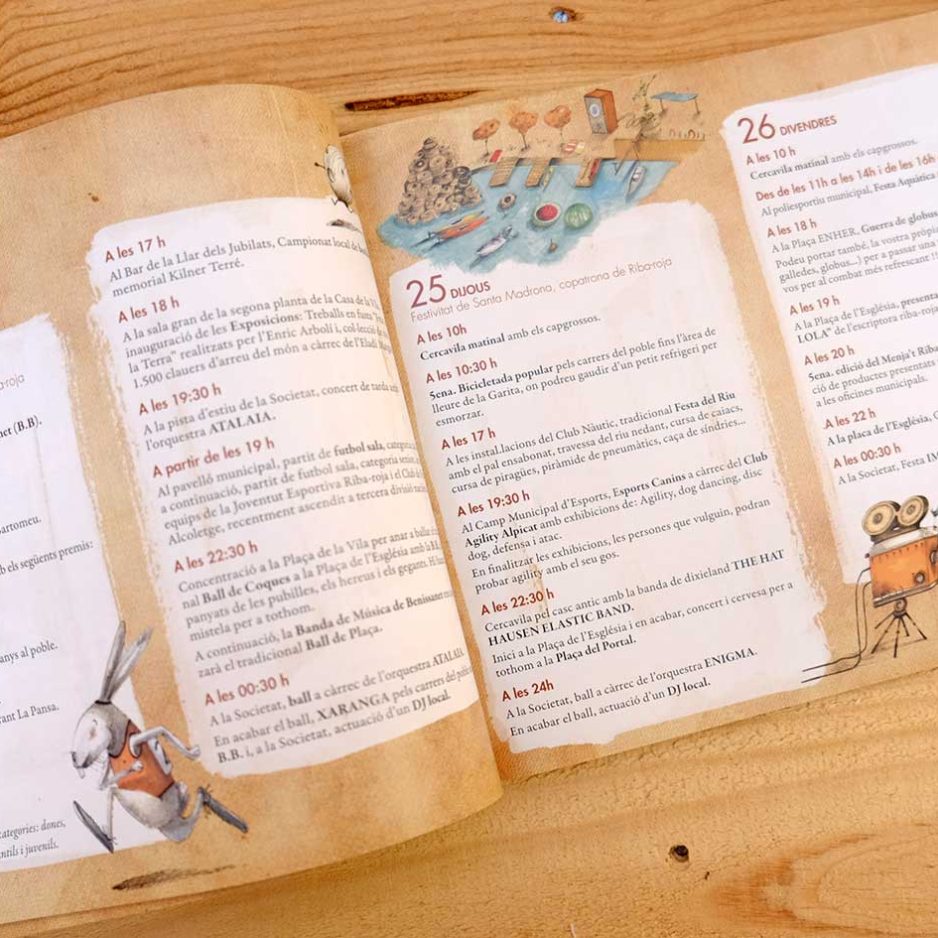 a-roja
net (B.B).
artomeu.
b els següents premis:
anys al poble.
rant La Pansa.
categories: dones,
ntils i juvenils.
A les 17 h
Al Bar de la Llar dels Jubilats, Campionat local de
memorial Kilner Terré.
A les 18 h
A la sala gran de la segona planta de la Casa de la
inauguració de les Exposicions: Treballs en fusta
la Terra" realitzats per l'Enric Arbolí i, col·lecció de
1.500 clauers d'arreu del món a càrrec de l'Eladi
A les 19:30 h
A la pista d'estiu de la Societat, concert de tarda
l'orquestra ATALAIA.
A partir de les 19 h
Al pavelló municipal, partit de futbol sala, categoria
a continuació, partit de futbol sala, categoria
equips de la Joventut Esportiva Riba-roja i el Club
Alcoletge, recentment ascendit a tercera divisió
A les 22:30 h
Concentració a la Plaça de la Vila per anar a
nal Ball de Coques a la Plaça de l'Església amb la
panyats de les pubilles, els hereus i els gegants. Hi
mistela per a tothom.
A continuació, la Banda de Música de Benissanet
zarà el tradicional Ball de Plaça.
A les 00:30 h
A la Societat, ball a càrrec de l'orquestra ATALAIA.
En acabar el ball, XARANGA pels carrers del
B.B. i, a la Societat, actuació d'un DJ local.
25 DIJOUS
Festivitat de Santa Madrona, copatrona de Riba-roja
A les 10h
Cercavila matinal amb els capgrossos.
A les 10:30 h
5ena. Bicicletada popular pels carrers del poble fins l'àrea de
lleure de la Garita, on podreu gaudir d'un petit refrigeri per
esmorzar.
A les 17 h
A les instal.lacions del Club Nàutic, tradicional Festa del Riu
amb el pal ensabonat, travessa del riu nedant, cursa de caiacs,
cursa de piragües, piràmide de pneumàtics, caça de síndries...
A les 19:30 h
Al Camp Municipal d'Esports, Esports Canins a càrrec del Club
Agility Alpicat amb exhibicions de: Agility, dog dancing, disc
dog, defensa i atac.
En finalitzar les exhibicions, les persones que vulguin, podran
probar agility amb el seu gos.
A les 22:30 h
Cercavila pel casc antic amb la banda de dixieland THE HAT
HAUSEN ELASTIC BAND.
Inici a la Plaça de l'Església i en acabar, concert i cervesa per a
tothom a la Plaça del Portal.
A les 24h
A la Societat, ball a càrrec de l'orquestra ENIGMA.
En acabar el ball, actuació d'un DJ local.
26 DIVENDRES
A les 10 h
Cercavila matinal amb els capgrossos.
Des de les 11h a les 14h i de les 16h
Al poliesportiu municipal, Festa Aquàtica
A les 18 h
A la Plaça ENHER, Guerra de globus
Podeu portar també, la vostra pròpia
galledes, globus...) per a passar una
vos per al combat més refrescant !!
A les 19 h
A la Plaça de l'Església, presenta
LOLA" de l'escriptora riba-roja
A les 20 h
5ena. edició del Menja't Riba
ció de productes presentats
a les oficines municipals.
A les 22 h
A la placa de l'Església,
A les 00:30 h
A la Societat, Festa